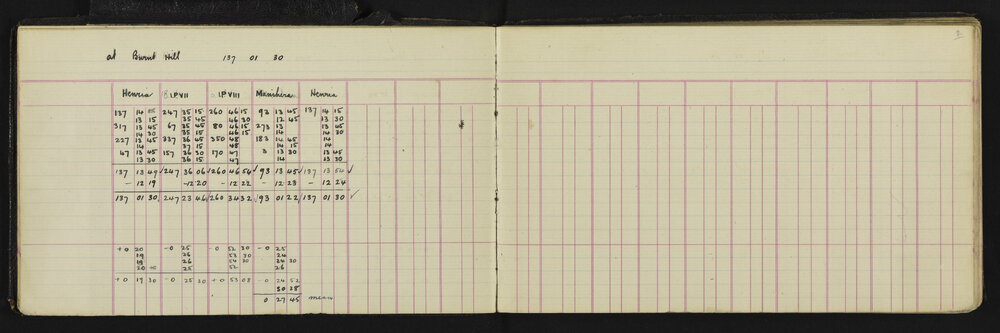 2
at Burnt Hill 137 01 30
Henria I.P.VII I.P.VIII Manihera Henria
137 14 05 247 35 15 260 46 15 93 13 45 137 14 15
13 15 35 45 46 30 12 45 13 30
317 13 45 67 35 45 80 46 15 273 13 13 45
14 30 35 15 46 15 14 14 30
227 13 45 337 36 45 350 48 183 14 45 14
14 37 48 14 15 14
47 13 45 157 36 30 170 47 3 13 30 13 45
13 30 36 15 47 14 13 30
137 13 49 ✓ 247 36 06 ✓ 260 46 54 ✓ 93 13 45 ✓ 137 13 54 ✓
- 12 19 - 12 20 - 12 22 - 12 23 - 12 24
137 01 30 247 23 46 ✓ 260 34 32 ✓ 93 01 22 ✓ 137 01 30 ✓
+0 20 -0 25 -0 52 30 -0 25
19 26 53 30 24
19 26 54 30 24 30
20 25 52 26
+0 19 30 -0 25 30 +0 53 08 -0 24 52
30 38
0 27 45 mean